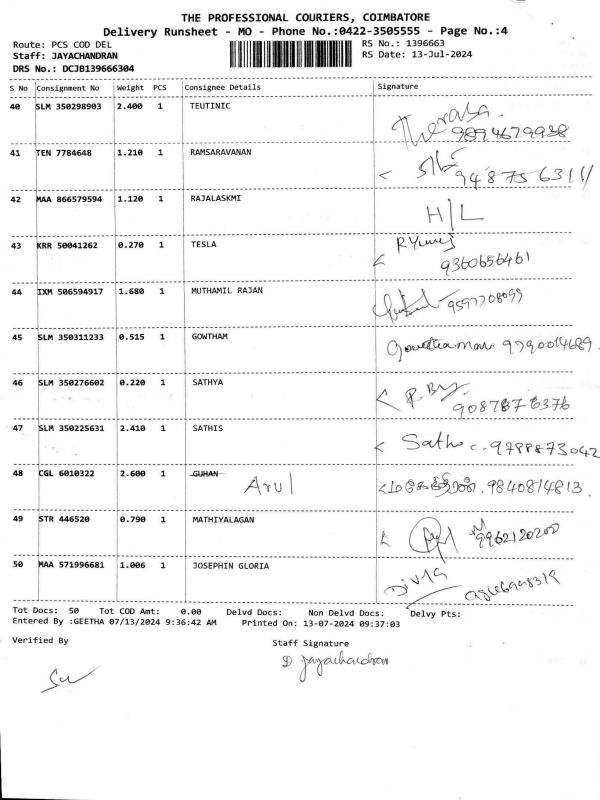 THE PROFESSIONAL COURIERS, COIMBATORE
Delivery Runsheet - MO - Phone No.:0422-3505555 - Page No.:4
Route: PCS COD DEL RS No.: 1396663
Staff: JAYACHANDRAN RS Date: 13-Jul-2024
DRS No.: DCJB139666304
S No Consignment No Weight PCS Consignee Details Signature
40 SLM 350298903 2.400 1 TEUTINIC 9894679938
41 TEN 7784648 1.210 1 RAMSARAVANAN
42 MAA 866579594 1.120 1 RAJALASKMI H/L
43 KRR 50041262 0.270 1 TESLA 9360656461
44 IXM 506594917 1.680 1 MUTHAMIL RAJAN 9597708099
45 SLM 350311233 0.515 1 GOWTHAM Gowthaman 9790014689
46 SLM 350276602 0.220 1 SATHYA
47 SLM 350225631 2.410 1 SATHIS 9788873042
48 CGL 6010322 2.600 1 GUHAN Arul 9840814813
49 STR 446520 0.790 1 MATHIYALAGAN 9962120200
50 MAA 571996681 1.006 1 JOSEPHIN GLORIA Divya
Tot Docs: 50 Tot COD Amt: 0.00 Delvd Docs: Non Delvd Docs: Delvy Pts:
Entered By :GEETHA 07/13/2024 9:36:42 AM Printed On: 13-07-2024 09:37:03
Verified By Staff Signature
D Jayachandran